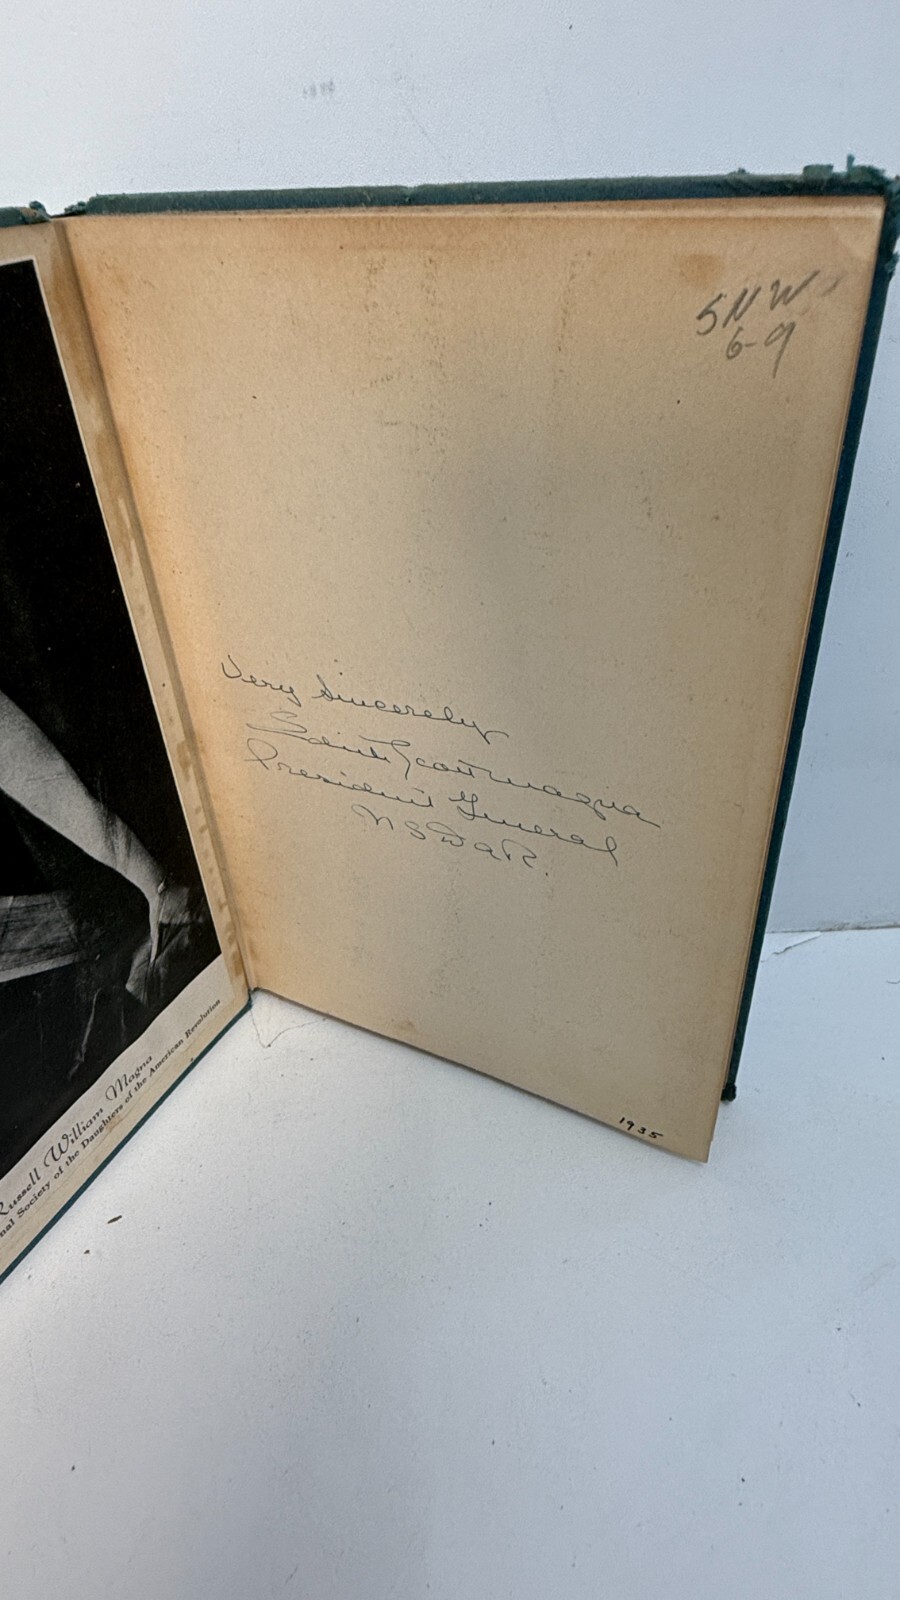 5NW
6-9
Very Sincerely
Edith Scott Magna
President General
N S D A R.
1935
Russell William Magna
nal Society of the Daughters of the American Revolution